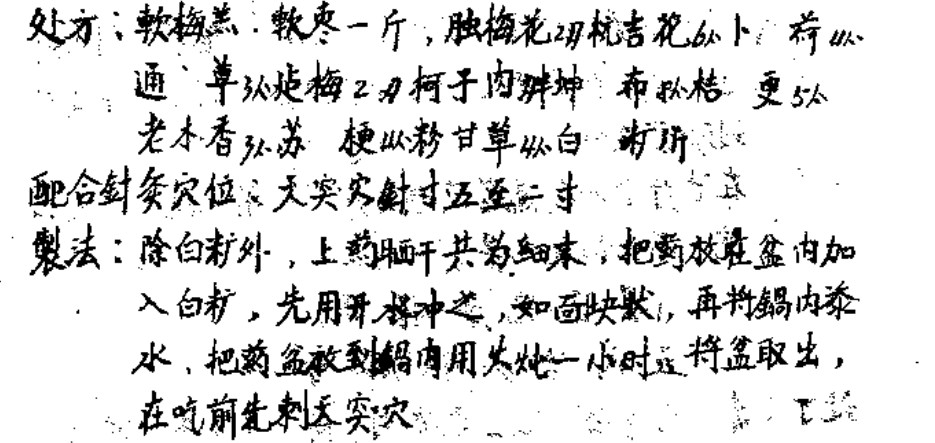 处方：軟梅羔．軟枣一斤，腊梅花2刃杭吉花6分卜 荷4分
通 草3分炬梅2刃柯子肉 坤 布 桔 更5分
老木香3分苏 梗4分粉甘草4分白 矿
配合針灸穴位：天突穴針寸五至二寸
製法：除白矿外，上药晒干共为細末，把药放在盆内加
入白矿，先用开 冲之，如面 ，再将鍋内添
水、把药盆放到鍋内用火炖一小时，将盆取出，
在吃前先刺天突穴